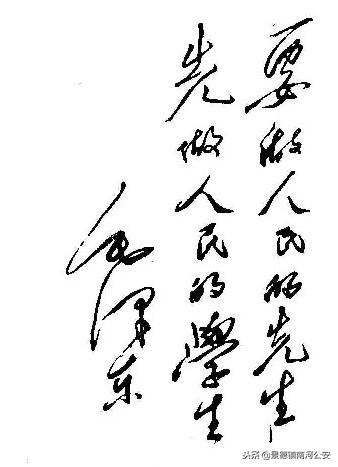 要做人民的先生
先做人民的學生
毛泽东
头条@景德镇南河公安